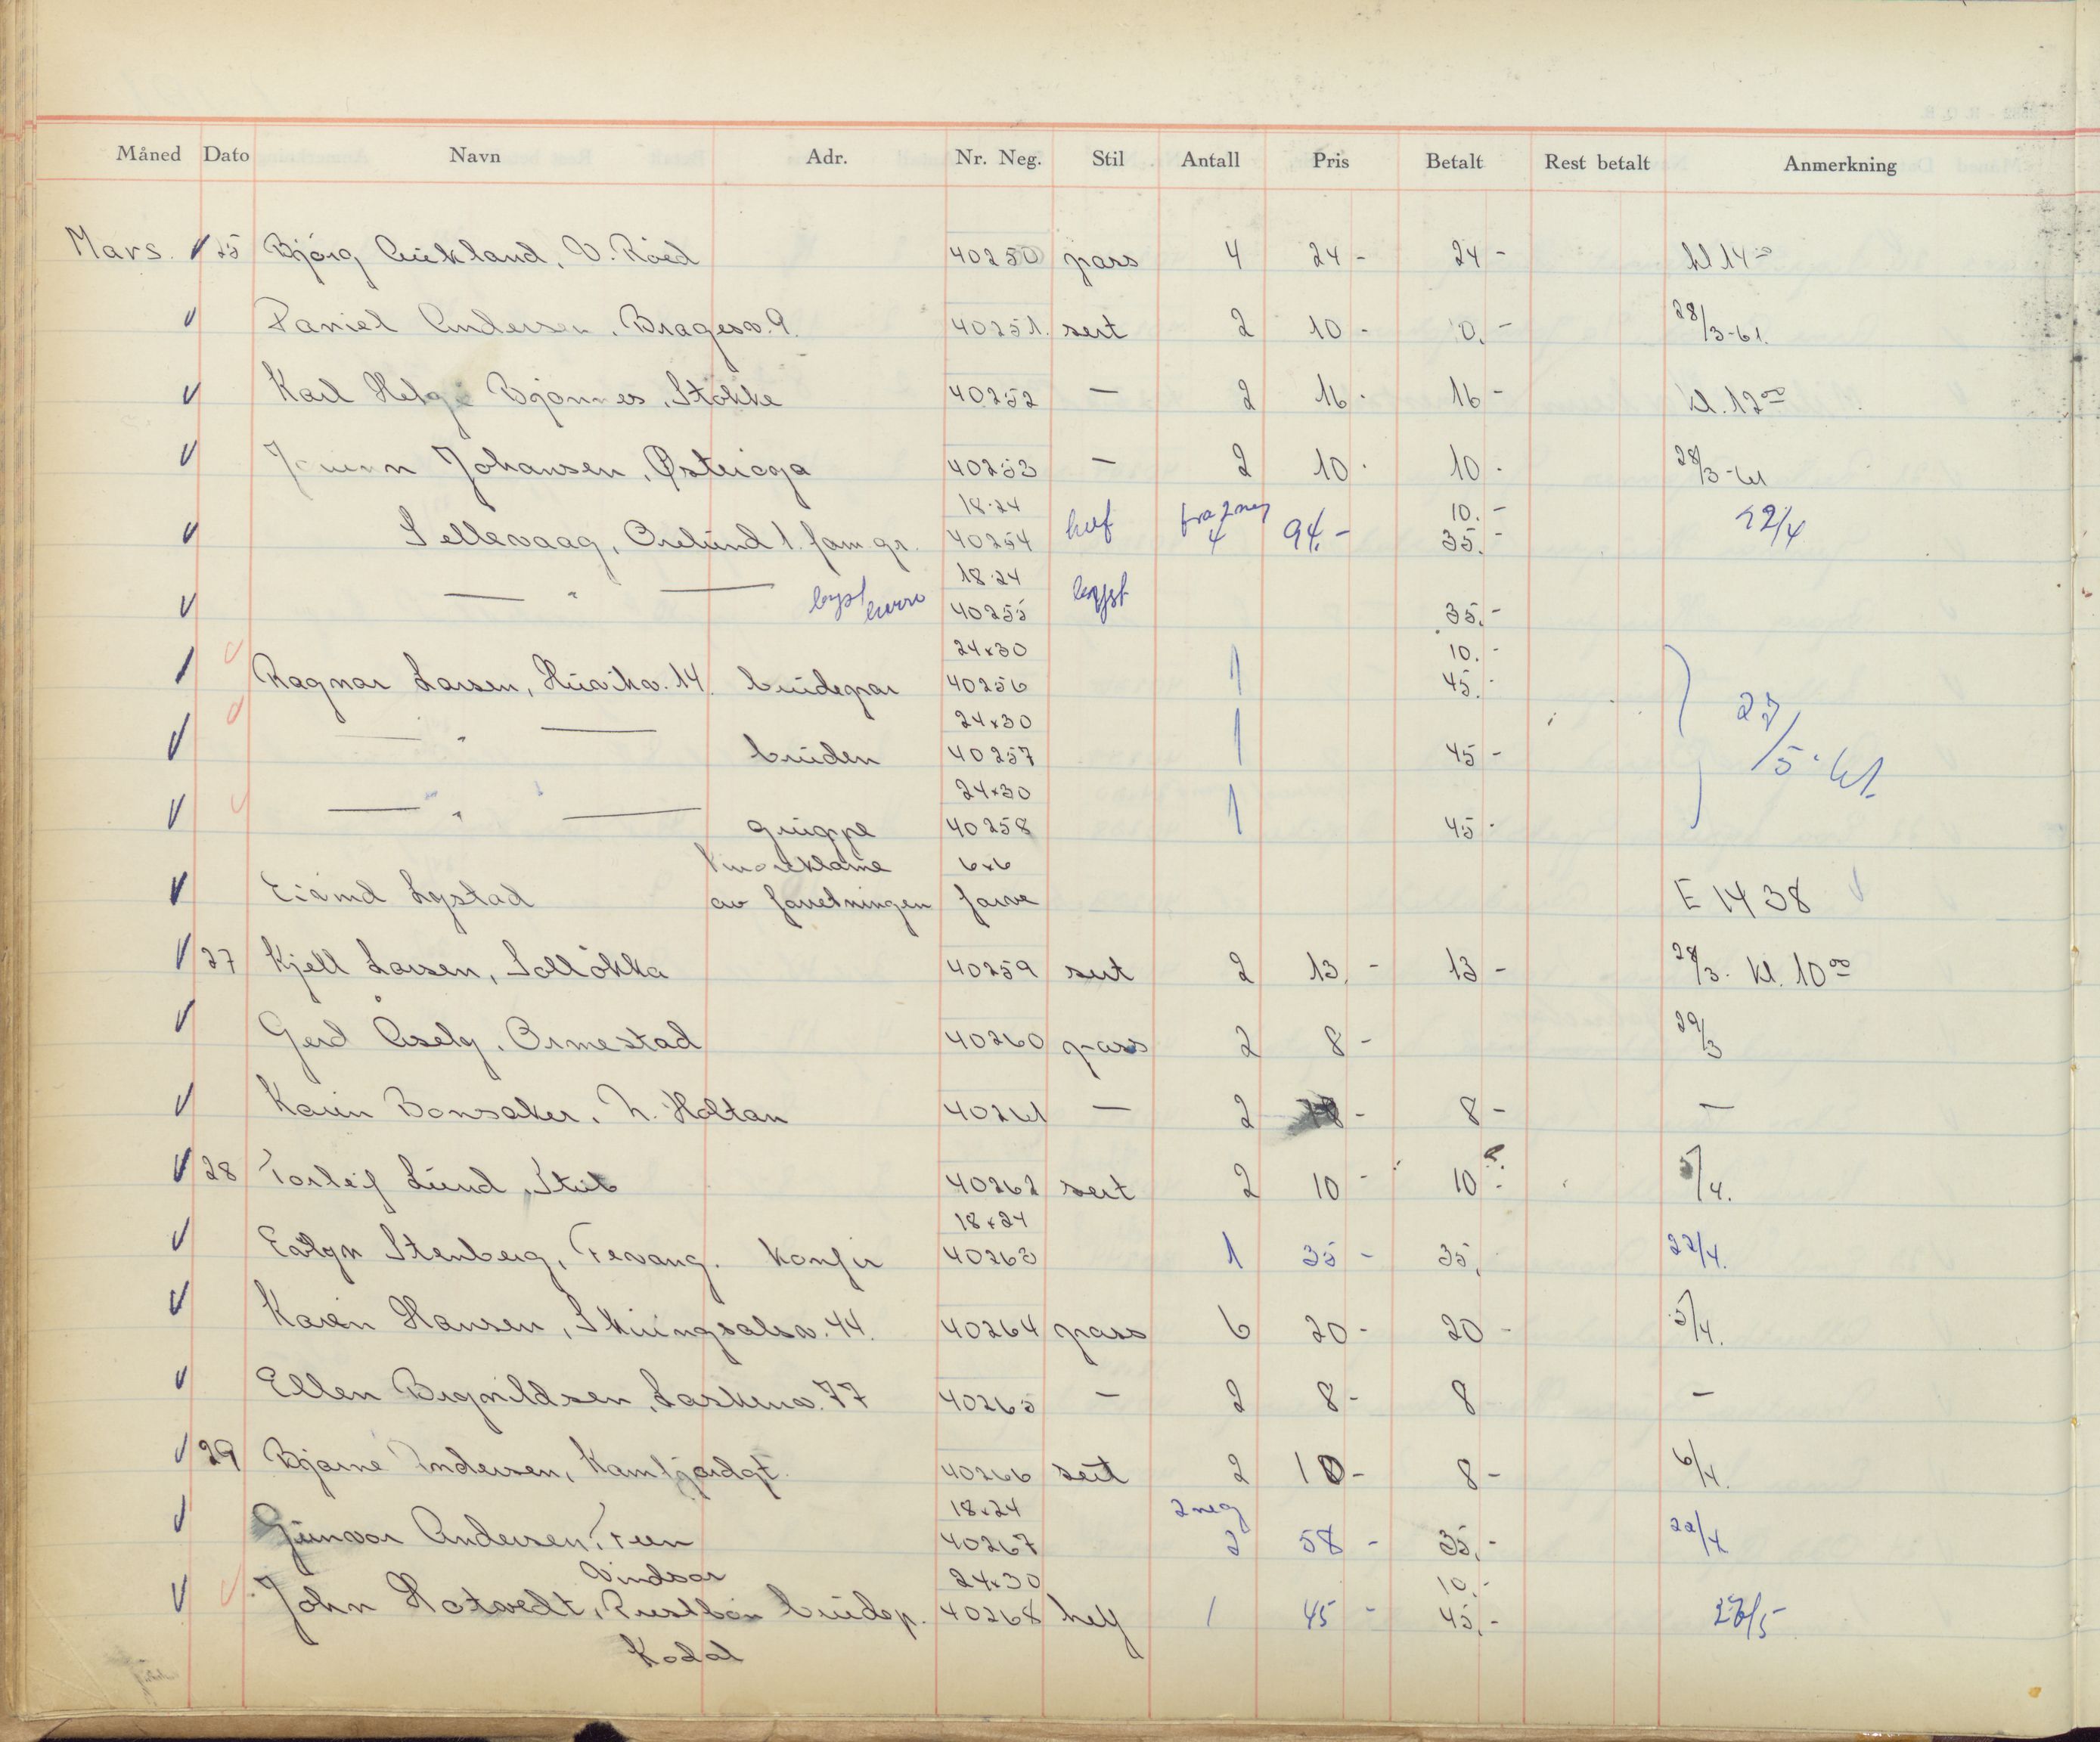 Måned Dato Navn Adr. Nr. Neg. Stil Antall Pris Betalt Rest betalt Anmerkning
Mars. 25 Bjørg Auekland, V. Råed 40250 pass 4 24 - 24 - kl 14⁰⁰
Daniel Andersen, Bragesv. 9. 40251. sert 2 10 - 0. - 28/3-61.
Karl Helge Bjønnes, Stokke 40252 — 2 16 - 16 - kl. 12⁰⁰
Johansen, Østerøya 40253 — 2 10 - 10 - 28/3-61
18-24 10. -
Sellevaag, Orelund 1. fam. gr. 40254 half fra 2 neg 4 94. - 35. - 22/4
18-24
— " — byst 40255 byst 35. -
24x30 10. -
Ragnar Larsen, Husvikv. 14. brudepar 40256 1 45. -
24x30
— " — bruden 40257 1 45 - 27/5-61.
24x30
— " — gruppe 40258 1 45 -
kinoreklame 6x6
Eivind Lystad av forretningen farve E 1438
27 Kjell Larsen, Solløkka 40259 sert 2 13. - 13 - 28/3. kl. 10⁰⁰
Gerd Aselg, Ormestad 40260 pass 2 8 - 29/3
Karin Bonsaker, N. Holtan 40261 — 2 8 - 8 - —
28 Torleif Lund, Stub 40262 sert 2 10 - 10 - 5/4.
18x24
Evlyn Stenberg, Fevang. konfir 40263 1 35 - 35, 22/4.
Karen Hansen, Skiringsalsv. 44. 40264 pass 6 20 - 20 - 5/4.
Ellen Brynildsen, Laskenv. 77 40265 — 2 8 - 8 —
29 Bjarne Andersen, Kamfjordgt. 40266 sert 2 10 - 8 - 6/4.
18x24 2 neg
Gunvor Andersen, Freen 40267 2 58 - 35, - 22/4
Vindsor 24x30 10. -
John Hotvedt, Prestbøn brudep. 40268 hel 1 45 - 45, - 27/5-
Kodal